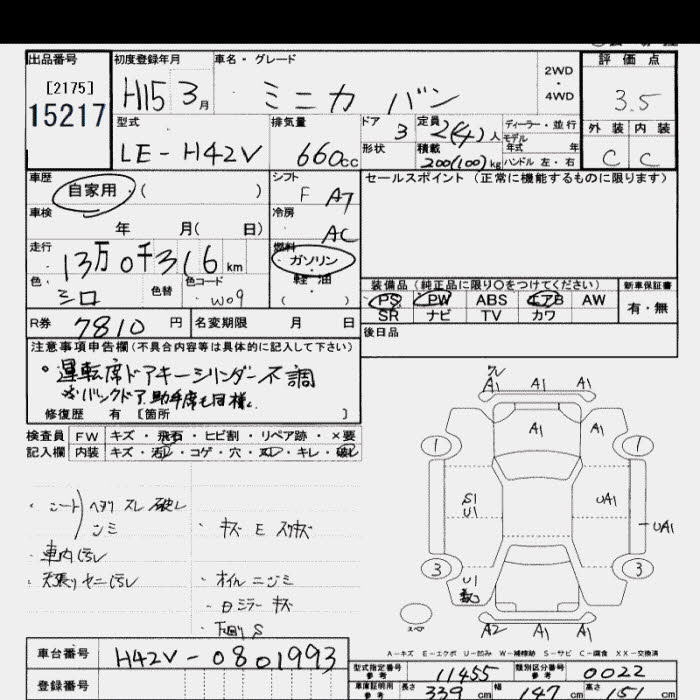 出品番号 初度登録年月 車名・グレード 2WD・4WD 評価点
[2175]
15217
H15 3月 ミニカ バン 3.5
型式 排気量 ドア 定員 ディーラー・並行 外装 内装
LE-H42V 660cc 3 2(4)人 モデル年式 年 C C
形状 積載 200(100)kg ハンドル 左・右
車歴 シフト セールスポイント(正常に機能するものに限ります)
自家用・( ) F A7
車検 冷房
年 月( 日) AC
走行 燃料
13万0千316km ガソリン
色 色替 色コード 軽油 装備品(純正品に限り○をつけてください) 新車保証書
シロ W09 ( ) PS PW ABS エアB AW 有・無
SR ナビ TV カワ
R券 7810円 名変期限 月 日 後日品
注意事項申告欄(不具合内容等は具体的に記入して下さい)
○運転席ドアキーシリンダー不調
バックドア、助手席も同様。
修復歴 有 [箇所 ]
検査員 FW キズ・飛石・ヒビ割・リペア跡・×要
記入欄 内装 キズ・汚レ・コゲ・穴・・キレ・破レ
A1 A1 A1
A1 A1
1 1
S1
U1 UA1 UA1
・シート ヘタリ スレ 破レ
シミ ・キズ E スリキズ
・車内汚レ
・天張り ヤニ汚レ ・オイルニジミ
3 3
U1
・日ミラー キズ
・下廻り S
A2 A1 A1
A-キズ E-エクボ U-凹み W-補修跡 S-サビ C-腐食 XX-交換済
車台番号 H42V-0801993
型式指定番号 参考 11455 類別区分番号 参考 0022
登録番号 車庫証明用 参考 長さ 339cm 幅 147cm 高さ 151cm